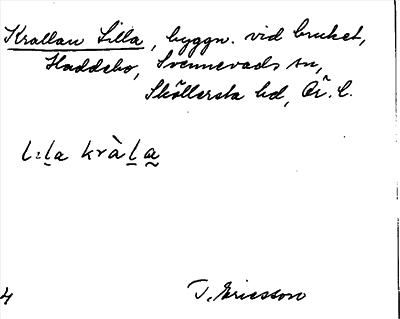 Krallan Lilla, byggn. vid bruket,
Haddebo, Svennevads sn,
Sköllersta hd, Ör. l.
l:l̲a kràl̲a̰
4
T. Ericsson